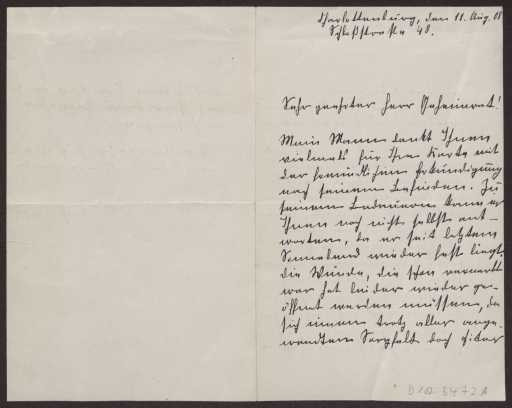 Charlottenburg, den 11. Aug. 08
Schloßstraße 48.
Sehr geehrter Herr Geheimrat!
Mein Mann dankt Ihnen
vielmals für Ihre Karte mit
der freundlichen Erkundigung
nach seinem Befinden. Zu
seinem Bedauern kann er
Ihnen noch nicht selbst ant-
worten, da er seit letztem
Sonnabend wieder fest liegt,
die Wunde, die schon vernarbt
war hat leider wieder ge-
öffnet werden müssen, da
sich innen trotz aller ange-
wendten Sorgfalt doch Eiter